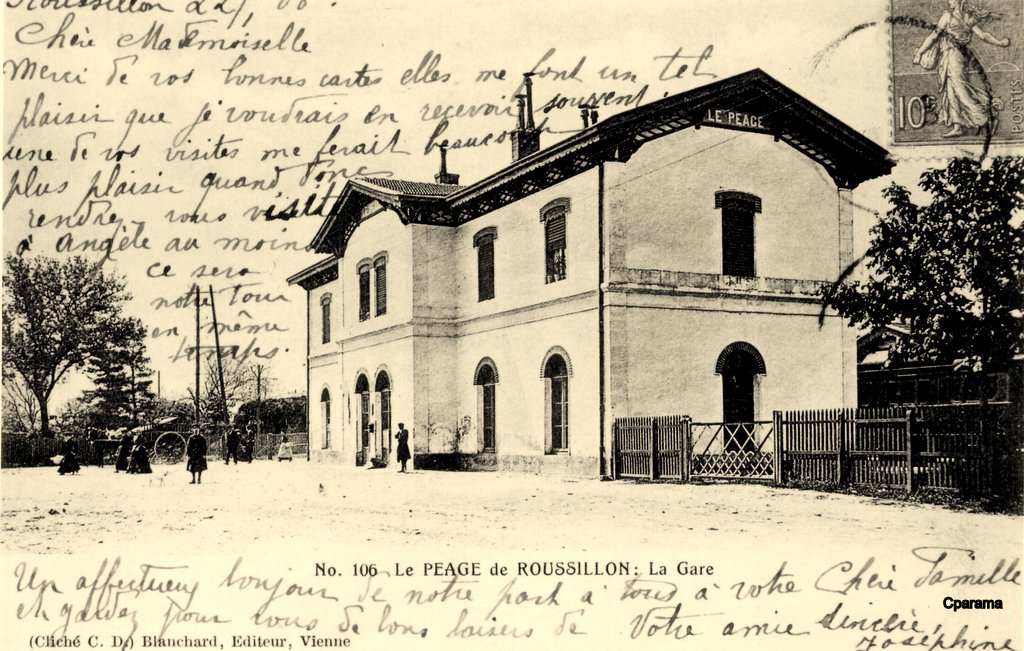 Roussillon 22/
Chère Mademoiselle
Merci de vos bonnes cartes elles me font un tel
plaisir que je voudrais en recevoir souvent.
une de vos visites me ferait beaucoup
plus plaisir quand donc
rendrez vous visite
à Angèle au moins
ce sera
notre tour
en même
temps.
10c
POSTES
LE PEAGE
No. 106 Le PEAGE de ROUSSILLON: La Gare
Un affectueux bonjour de notre part à tous à votre Chère famille
et gardez pour vous de bons baisers de Votre amie sincère,
Joséphine
Cparama
(Cliché C. D.) Blanchard, Editeur, Vienne